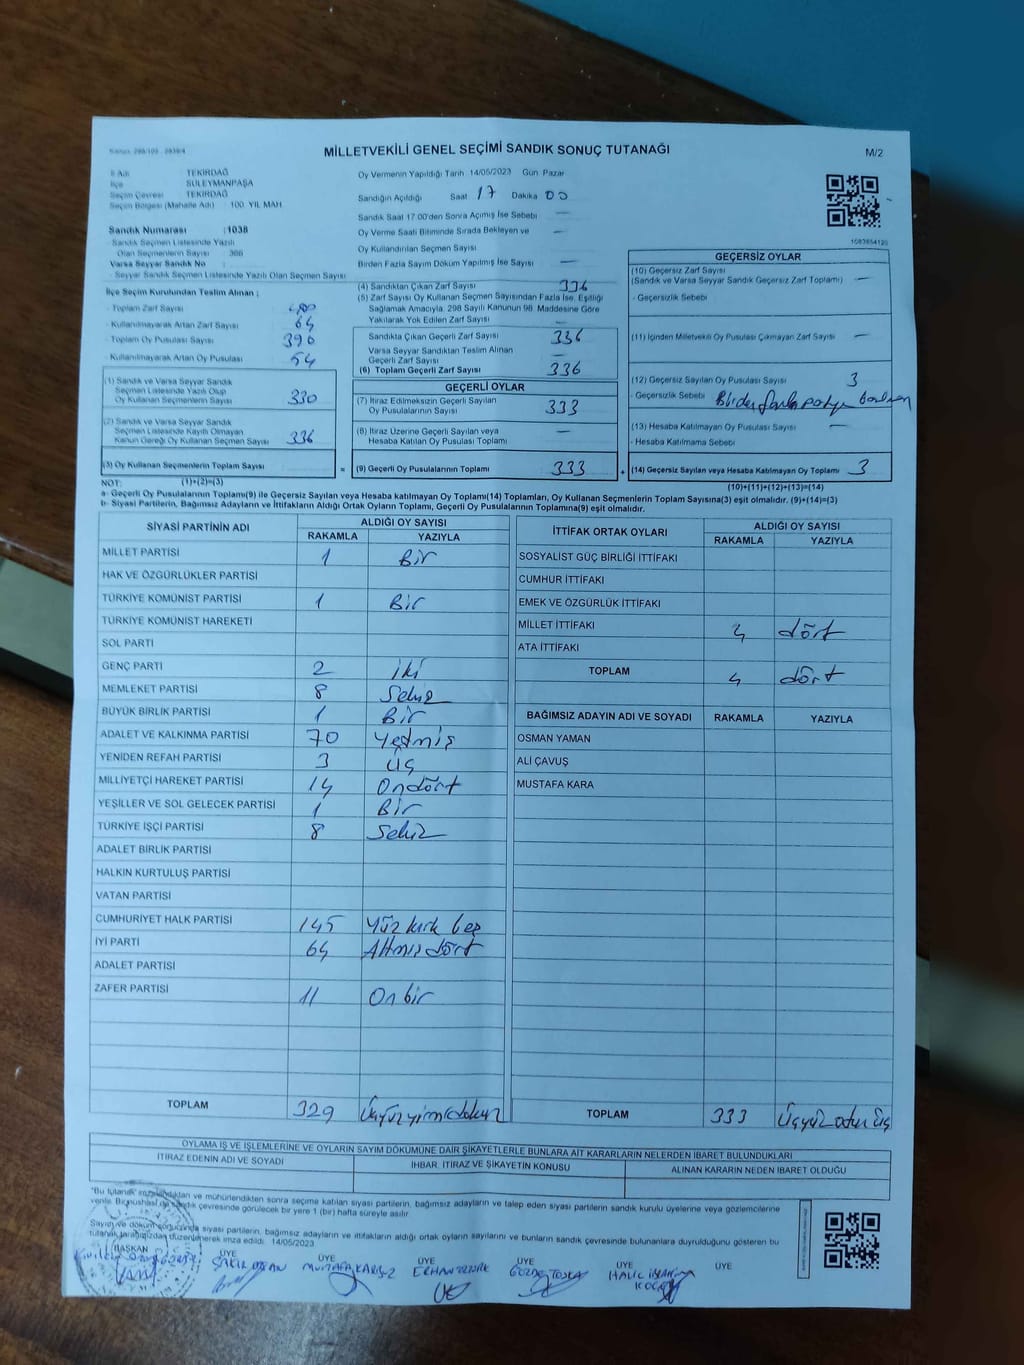 Kanun: 298/105 - 2839/4
MİLLETVEKİLİ GENEL SEÇİMİ SANDIK SONUÇ TUTANAĞI
M/2
İl Adı TEKİRDAĞ
İlçe SÜLEYMANPAŞA
Seçim Çevresi TEKİRDAĞ
Seçim Bölgesi (Mahalle Adı) : 100. YIL MAH.
Sandık Numarası : 1038
- Sandık Seçmen Listesinde Yazılı
Olan Seçmenlerin Sayısı : 366
Varsa Seyyar Sandık No :
- Seyyar Sandık Seçmen Listesinde Yazılı Olan Seçmen Sayısı
İlçe Seçim Kurulundan Teslim Alınan ;
- Toplam Zarf Sayısı 400
- Kullanılmayarak Artan Zarf Sayısı 64
- Toplam Oy Pusulası Sayısı 390
- Kullanılmayarak Artan Oy Pusulası 54
(1) Sandık ve Varsa Seyyar Sandık
Seçmen Listesinde Yazılı Olup
Oy Kullanan Seçmenlerin Sayısı 330
(2) Sandık ve Varsa Seyyar Sandık
Seçmen Listesinde Kayıtlı Olmayan
Kanun Gereği Oy Kullanan Seçmen Sayısı 336
(3) Oy Kullanan Seçmenlerin Toplam Sayısı
Oy Vermenin Yapıldığı Tarih 14/05/2023 Gün Pazar
Sandığın Açıldığı Saat 17 Dakika 00
Sandık Saat 17:00'den Sonra Açımış İse Sebebi —
Oy Verme Saati Bitiminde Sırada Bekleyen ve
Oy Kullandırılan Seçmen Sayısı —
Birden Fazla Sayım Döküm Yapılmış İse Sayısı —
(4) Sandıktan Çıkan Zarf Sayısı 336
(5) Zarf Sayısı Oy Kullanan Seçmen Sayısından Fazla İse, Eşitliği
Sağlamak Amacıyla, 298 Sayılı Kanunun 98. Maddesine Göre
Yakılarak Yok Edilen Zarf Sayısı —
Sandıkta Çıkan Geçerli Zarf Sayısı 336
Varsa Seyyar Sandıktan Teslim Alınan
Geçerli Zarf Sayısı —
(6) Toplam Geçerli Zarf Sayısı 336
GEÇERLİ OYLAR
(7) İtiraz Edilmeksizin Geçerli Sayılan
Oy Pusulalarının Sayısı 333
(8) İtiraz Üzerine Geçerli Sayılan veya
Hesaba Katılan Oy Pusulası Toplamı —
= (9) Geçerli Oy Pusulalarının Toplamı 333
1083654120
GEÇERSİZ OYLAR
(10) Geçersiz Zarf Sayısı
(Sandık ve Varsa Seyyar Sandık Geçersiz Zarf Toplamı) —
- Geçersizlik Sebebi
(11) İçinden Milletvekili Oy Pusulası Çıkmayan Zarf Sayısı —
(12) Geçersiz Sayılan Oy Pusulası Sayısı 3
- Geçersizlik Sebebi Birden fazla
(13) Hesaba Katılmayan Oy Pusulası Sayısı —
- Hesaba Katılmama Sebebi
+ (14) Geçersiz Sayılan veya Hesaba Katılmayan Oy Toplamı 3
NOT: (1)+(2)=(3)
(10)+(11)+(12)+(13)=(14)
a- Geçerli Oy Pusulalarının Toplamı(9) ile Geçersiz Sayılan veya Hesaba katılmayan Oy Toplamı(14) Toplamları, Oy Kullanan Seçmenlerin Toplam Sayısına(3) eşit olmalıdır. (9)+(14)=(3)
b- Siyasi Partilerin, Bağımsız Adayların ve İttifakların Aldığı Ortak Oyların Toplamı, Geçerli Oy Pusulalarının Toplamına(9) eşit olmalıdır.
SİYASİ PARTİNİN ADI ALDIĞI OY SAYISI
RAKAMLA YAZIYLA
MİLLET PARTİSİ 1 Bir
HAK VE ÖZGÜRLÜKLER PARTİSİ
TÜRKİYE KOMÜNİST PARTİSİ 1 Bir
TÜRKİYE KOMÜNİST HAREKETİ
SOL PARTİ
GENÇ PARTİ 2 iki
MEMLEKET PARTİSİ 8 Sekiz
BÜYÜK BİRLİK PARTİSİ 1 Bir
ADALET VE KALKINMA PARTİSİ 70 Yetmiş
YENİDEN REFAH PARTİSİ 3 üç
MİLLİYETÇİ HAREKET PARTİSİ 14 Ondört
YEŞİLLER VE SOL GELECEK PARTİSİ 1 Bir
TÜRKİYE İŞÇİ PARTİSİ 8 Sekiz
ADALET BİRLİK PARTİSİ
HALKIN KURTULUŞ PARTİSİ
VATAN PARTİSİ
CUMHURİYET HALK PARTİSİ 145 Yüz kırk beş
İYİ PARTİ 64 Altmış dört
ADALET PARTİSİ
ZAFER PARTİSİ 11 On bir
TOPLAM 329 üçyüzyirmidokuz
İTTİFAK ORTAK OYLARI ALDIĞI OY SAYISI
RAKAMLA YAZIYLA
SOSYALİST GÜÇ BİRLİĞİ İTTİFAKI
CUMHUR İTTİFAKI
EMEK VE ÖZGÜRLÜK İTTİFAKI
MİLLET İTTİFAKI 4 dört
ATA İTTİFAKI
TOPLAM 4 dört
BAĞIMSIZ ADAYIN ADI VE SOYADI RAKAMLA YAZIYLA
OSMAN YAMAN
ALİ ÇAVUŞ
MUSTAFA KARA
TOPLAM 333 üçyüz otuz üç
OYLAMA İŞ VE İŞLEMLERİNE VE OYLARIN SAYIM DÖKÜMÜNE DAİR ŞİKAYETLERLE BUNLARA AİT KARARLARIN NELERDEN İBARET BULUNDUKLARI
İTİRAZ EDENİN ADI VE SOYADI İHBAR, İTİRAZ VE ŞİKAYETİN KONUSU ALINAN KARARIN NEDEN İBARET OLDUĞU
"Bu tutanak" imzalandıktan ve mühürlendikten sonra seçime katılan siyasi partilerin, bağımsız adayların ve talep eden siyasi partilerin sandık kurulu üyelerine veya gözlemcilerine
verilir. Bir nüshası da sandık çevresinde görülecek bir yere 1 (bir) hafta süreyle asılır.
Sayım ve döküm sonucunda siyasi partilerin, bağımsız adayların ve ittifakların aldığı ortak oyların sayılarını ve bunların sandık çevresinde bulunanlara duyrulduğunu gösteren bu
tutanak tarafımızdan düzenlenerek imza edildi. 14/05/2023
BAŞKAN ÜYE ÜYE ÜYE ÜYE ÜYE ÜYE
ŞAKİR MUSTAFA ERHAN GÖZDE HALİL İBRAHİM